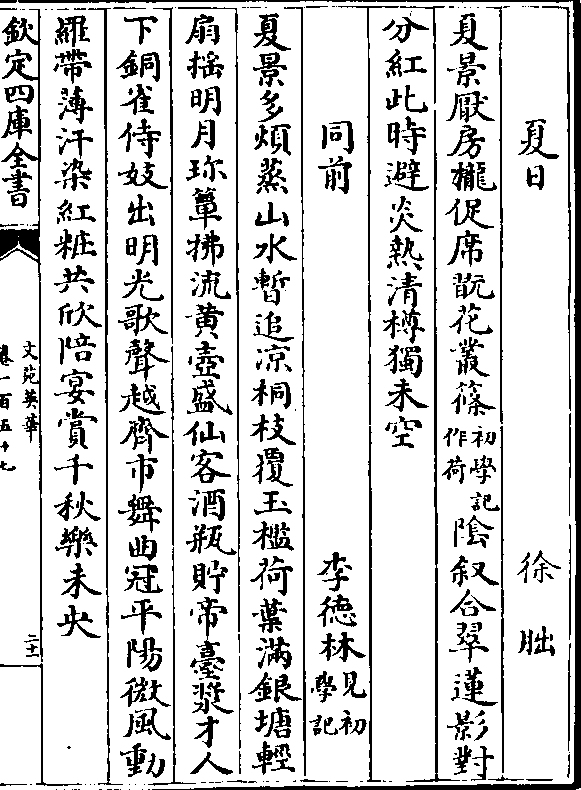 夏日　徐朏
夏景厭房櫳促席翫花叢篠初學記作荷陰叙合翠蓮影對
分紅此時避炎熱清樽獨未空
同前　李德林見初學記
夏景多煩蒸山水暫追凉桐枝覆玉檻荷葉滿銀塘輕
扇揺明月珎簟拂流黄壺盛仙客酒瓶貯帝臺漿才人
下銅雀侍妓出明光歌聲越齊市舞曲冠平陽微風動
羅帶薄汗染紅粧共欣陪宴賞千秋樂未央
欽定四庫全書
文苑英華
卷一百五十七
二十一